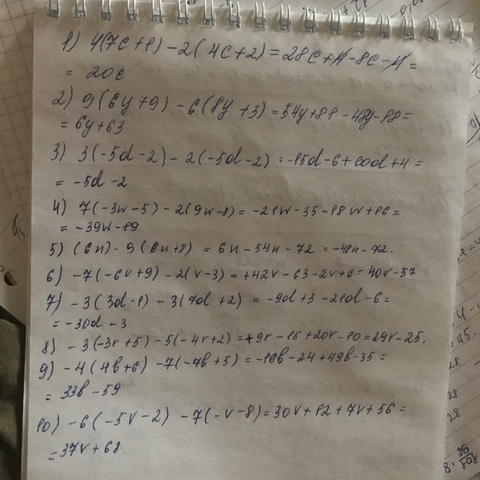 1) 4(7c+1)-2(4c+2)=28c+4-8c-4=
= 20c
2) 9(6y+9)-6(8y+3)=54y+81-48y-18=
= 6y+63
3) 3(-5d-2)-2(-5d-2)=-15d-6+10d+4=
= -5d-2
4) 7(-3w-5)-2(9w-8)=-21w-35-18w+16=
= -39w-19
5) (6n)-9(6n+8)= 6n-54n-72=-48n-72.
6) -7(-6v+9)-2(v-3)=+42v-63-2v+6=40v-57
7) -3(3d-1)-3(7d+2)=-9d+3-21d-6=
= -30d-3
8) -3(-3r+5)-5(-4r+2)=+9r-15+20r-10=29r-25.
9) -4(4b+6)-7(-7b+5)=-16b-24+49b-35=
= 33b-59
10) -6(-5v-2)-7(-v-8)=30v+12+7v+56=
=37v+68.